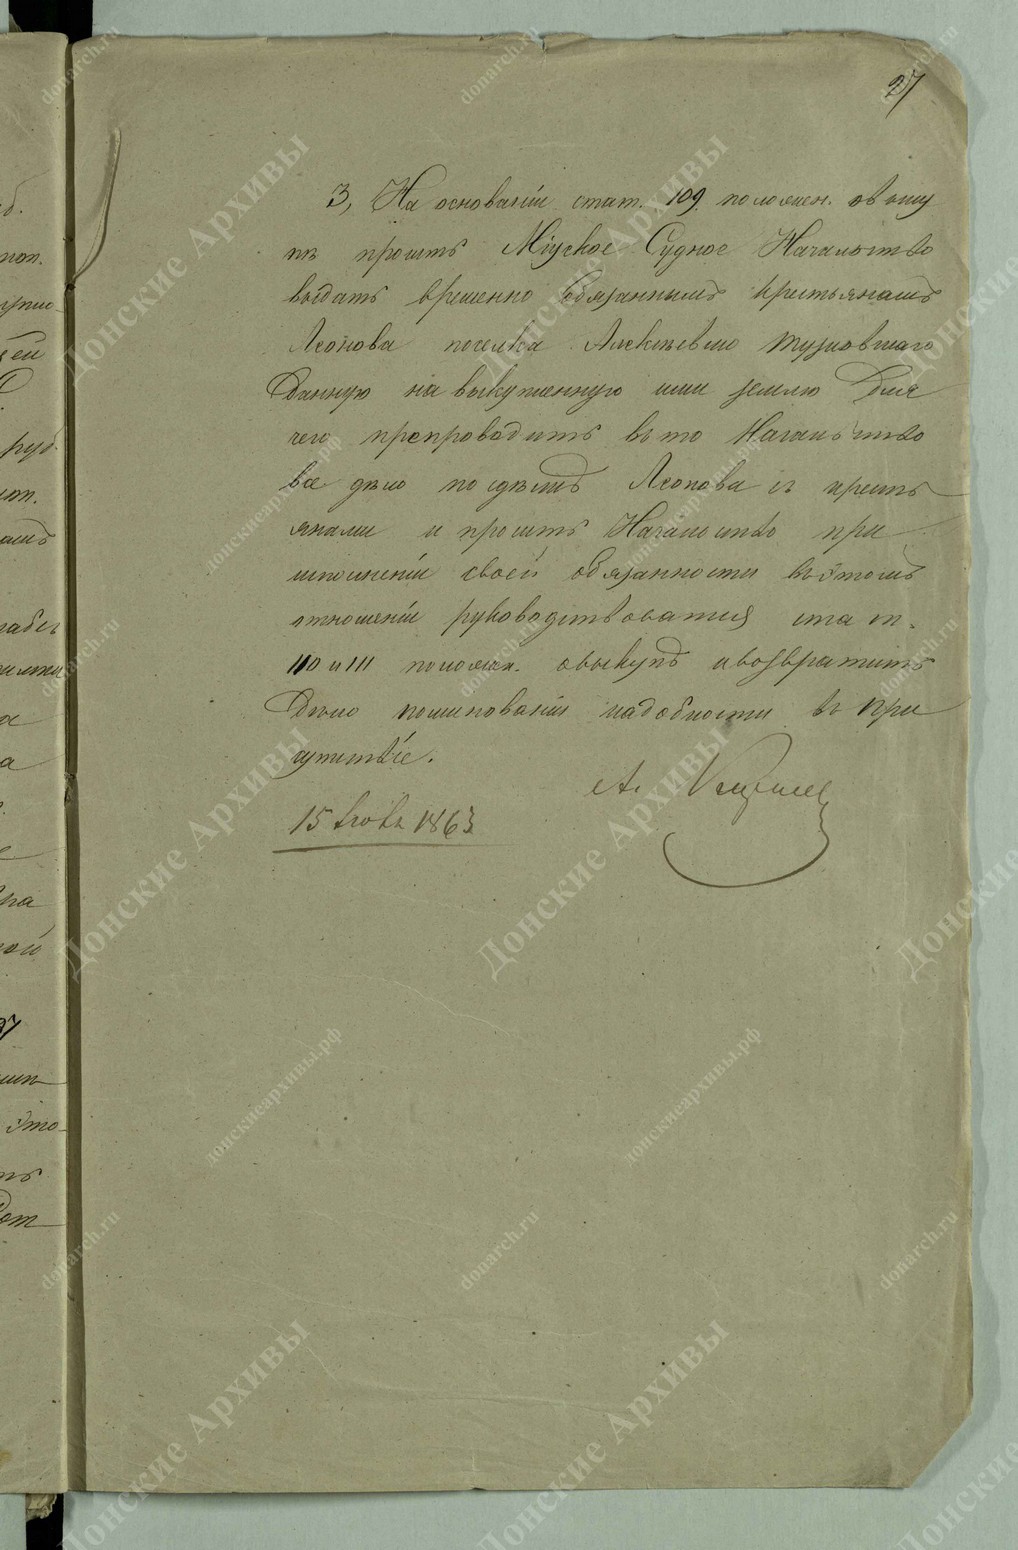 27
3, На основаніи стат. 109 положен. о выку
пѣ просить Міуское Судное Начальство
выдать временно обязаннымъ крестьянамъ
Леонова поселка Алексѣево Тузловскаго
данную на выкупленную ими землю для
чего препроводить въ то Начальство
все дѣло по сдѣлкѣ Леонова съ кресть
янами и просить Начальство при
исполненіи своей обязанности въ этомъ
отношеніи руководствоваться стат.
110 и 111 положен. о выкупѣ и возвратить
дѣло по минованіи надобности въ При
сутствіе.
А.
15 1863